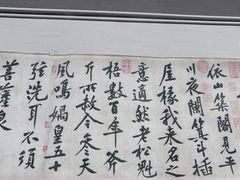 依山築閣見平
川夜闌箕斗插
屋椽我來名之
意適然老松魁
梧數百年斧
斤所赦今參天
風鳴媧皇五十
弦洗耳不須
菩薩泉